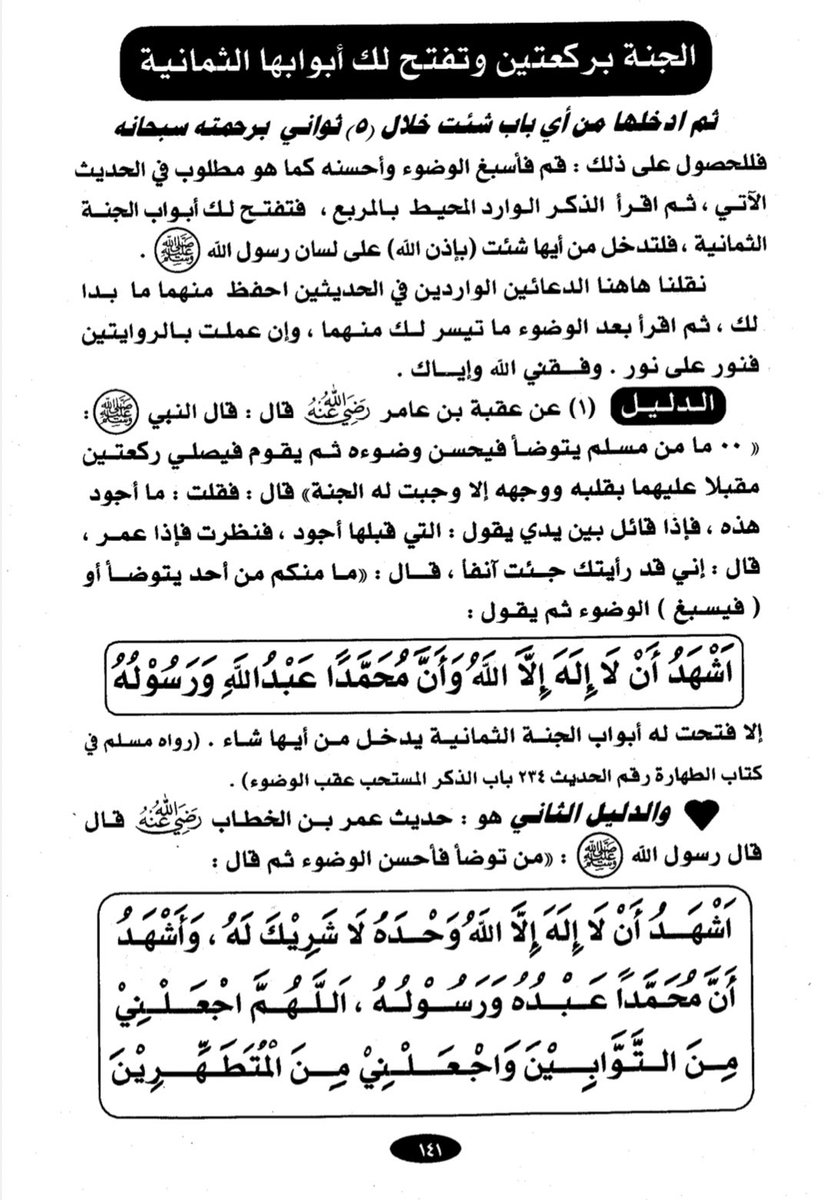 الجنة بركعتين وتفتح لك أبوابها الثمانية
ثم ادخلها من أي باب شئت خلال (٥) ثواني برحمته سبحانه
فللحصول على ذلك : قم فأسبغ الوضوء وأحسنه كما هو مطلوب في الحديث
الآتي ، ثم اقرأ الذكر الوارد المحيط بالمربع ، فتفتح لك أبواب الجنة
الثمانية ، فلتدخل من أيها شئت (بإذن الله) على لسان رسول الله ﷺ .
نقلنا هاهنا الدعائين الواردين في الحديثين احفظ منهما ما بدا
لك ، ثم اقرأ بعد الوضوء ما تيسر لك منهما ، وإن عملت بالروايتين
فنور على نور . وفقني الله وإياك .
الدليل (١) عن عقبة بن عامر رَضِيَ اللهُ عَنْهُ قال : قال النبي ﷺ :
« ٠٠ ما من مسلم يتوضأ فيحسن وضوءه ثم يقوم فيصلي ركعتين
مقبلا عليهما بقلبه ووجهه إلا وجبت له الجنة» قال : فقلت : ما أجود
هذه ، فإذا قائل بين يدي يقول : التي قبلها أجود ، فنظرت فإذا عمر ،
قال : إني قد رأيتك جئت آنفاً ، قال : «ما منكم من أحد يتوضأ أو
( فيسبغ ) الوضوء ثم يقول :
اَشْهَدُ أَنْ لَا إِلَهَ إِلَّا اللهُ وَأَنَّ مُحَمَّدًا عَبْدُ اللهِ وَرَسُوْلُهُ
إلا فتحت له أبواب الجنة الثمانية يدخل من أيها شاء . (رواه مسلم في
كتاب الطهارة رقم الحديث ٢٣٤ باب الذكر المستحب عقب الوضوء) .
والدليل الثاني هو : حديث عمر بن الخطاب رَضِيَ اللهُ عَنْهُ قال
قال رسول الله ﷺ : «من توضأ فأحسن الوضوء ثم قال :
اَشْهَدُ أَنْ لَا إِلَهَ إِلَّا اللهُ وَحْدَهُ لَا شَرِيْكَ لَهُ ، وَأَشْهَدُ
أَنَّ مُحَمَّداً عَبْدُهُ وَرَسُوْلُهُ ، اَللَّهُمَّ اجْعَلْنِيْ
مِنَ التَّوَّابِيْنَ وَاجْعَلْنِيْ مِنَ الْمُتَطَهِّرِيْنَ
١٤١